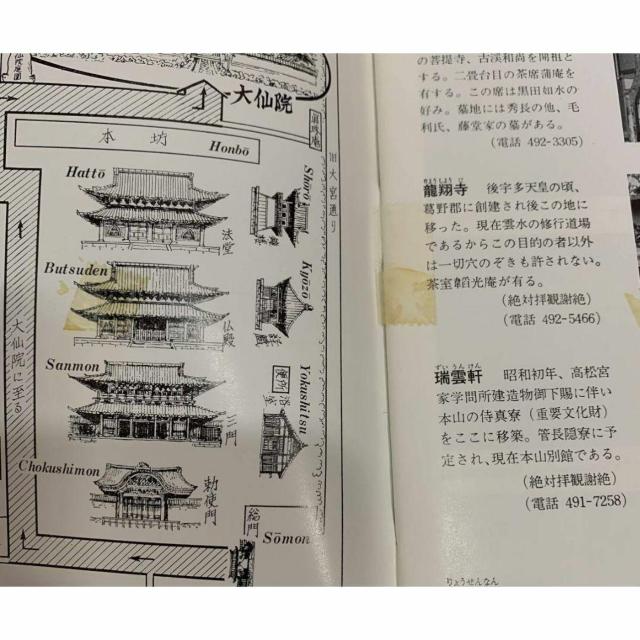 大仙院
本坊
Honbō
旧大宮通り
Hattō
法堂
Shōrō
鐘楼
Butsuden
仏殿
Kyōzō
経蔵
Sanmon
三門
Yokushitsu
浴室
Chokushimon
勅使門
総門
Sōmon
大仙院に至る
の菩提寺、古渓和尚を開祖と
する。二畳台目の茶席蒲庵を
有する。この席は黒田如水の
好み。墓地には秀長の他、毛
利氏、藤堂家の墓がある。
(電話 492-3305)
りゅうしょうじ
龍翔寺 後宇多天皇の頃、
葛野郡に創建され後この地に
移った。現在雲水の修行道場
であるからこの目的の者以外
は一切穴のぞきも許されない。
茶室韜光庵が有る。
(絶対拝観謝絶)
(電話 492-5466)
ずいうんけん
瑞雲軒 昭和初年、高松宮
家学問所建造物御下賜に伴い
本山の侍真寮(重要文化財)
をここに移築。管長隠寮に予
定され、現在本山別館である。
(絶対拝観謝絶)
(電話 491-7258)
りょうせんなん